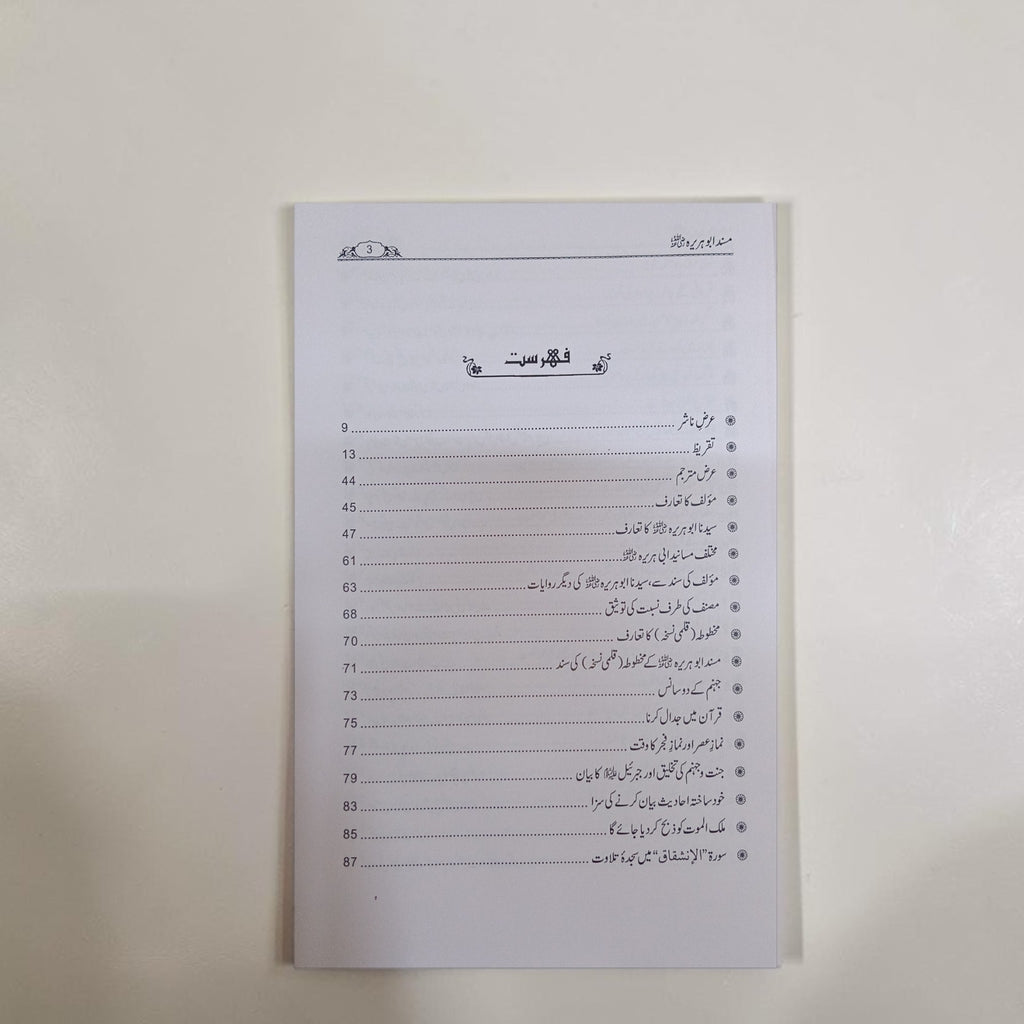 مسند ابو ہریرہ رضی اللہ عنہ
3
فہرست
عرضِ ناشر ........ 9
تقریظ ........ 13
عرضِ مترجم ........ 44
مؤلف کا تعارف ........ 45
سیدنا ابو ہریرہ رضی اللہ عنہ کا تعارف ........ 47
مختلف مسانید ابی ہریرہ رضی اللہ عنہ ........ 61
مؤلف کی سند سے، سیدنا ابو ہریرہ رضی اللہ عنہ کی دیگر روایات ........ 63
مصنف کی طرف نسبت کی توثیق ........ 68
مخطوطہ (قلمی نسخہ) کا تعارف ........ 70
مسند ابو ہریرہ رضی اللہ عنہ کے مخطوطہ (قلمی نسخہ) کی سند ........ 71
جہنم کے دو سانس ........ 73
قرآن میں جدال کرنا ........ 75
نمازِ عصر اور نمازِ فجر کا وقت ........ 77
جنت و جہنم کی تخلیق اور جبرئیل علیہ السلام کا بیان ........ 79
خود ساختہ احادیث بیان کرنے کی سزا ........ 83
ملک الموت کو ذبح کر دیا جائے گا ........ 85
سورۃ ”الإنشقاق“ میں سجدۂ تلاوت ........ 87